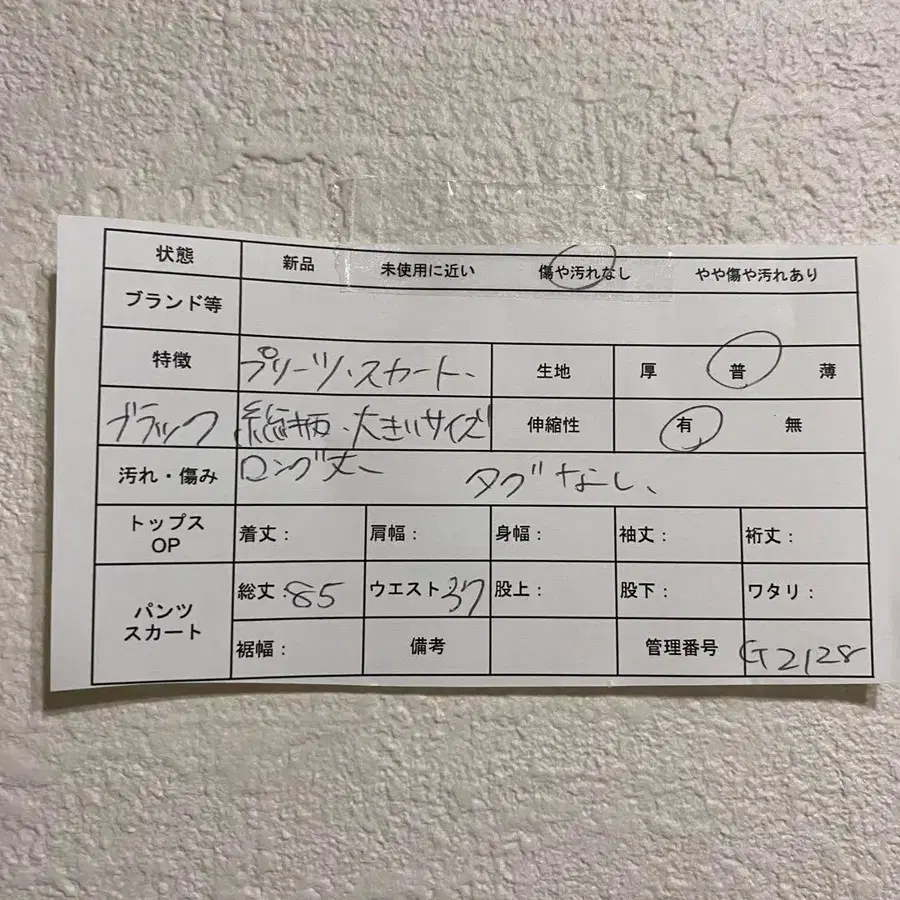 状態 新品 未使用に近い 傷や汚れなし やや傷や汚れあり
ブランド等
特徴 プリーツ、スカート、 生地 厚 普 薄
ブラック 総柄、大きいサイズ 伸縮性 有 無
汚れ・傷み ロング丈 タグなし、
トップス OP 着丈： 肩幅： 身幅： 袖丈： 裄丈：
パンツ スカート 総丈：85 ウエスト37 股上： 股下： ワタリ：
裾幅： 備考 管理番号 G2128